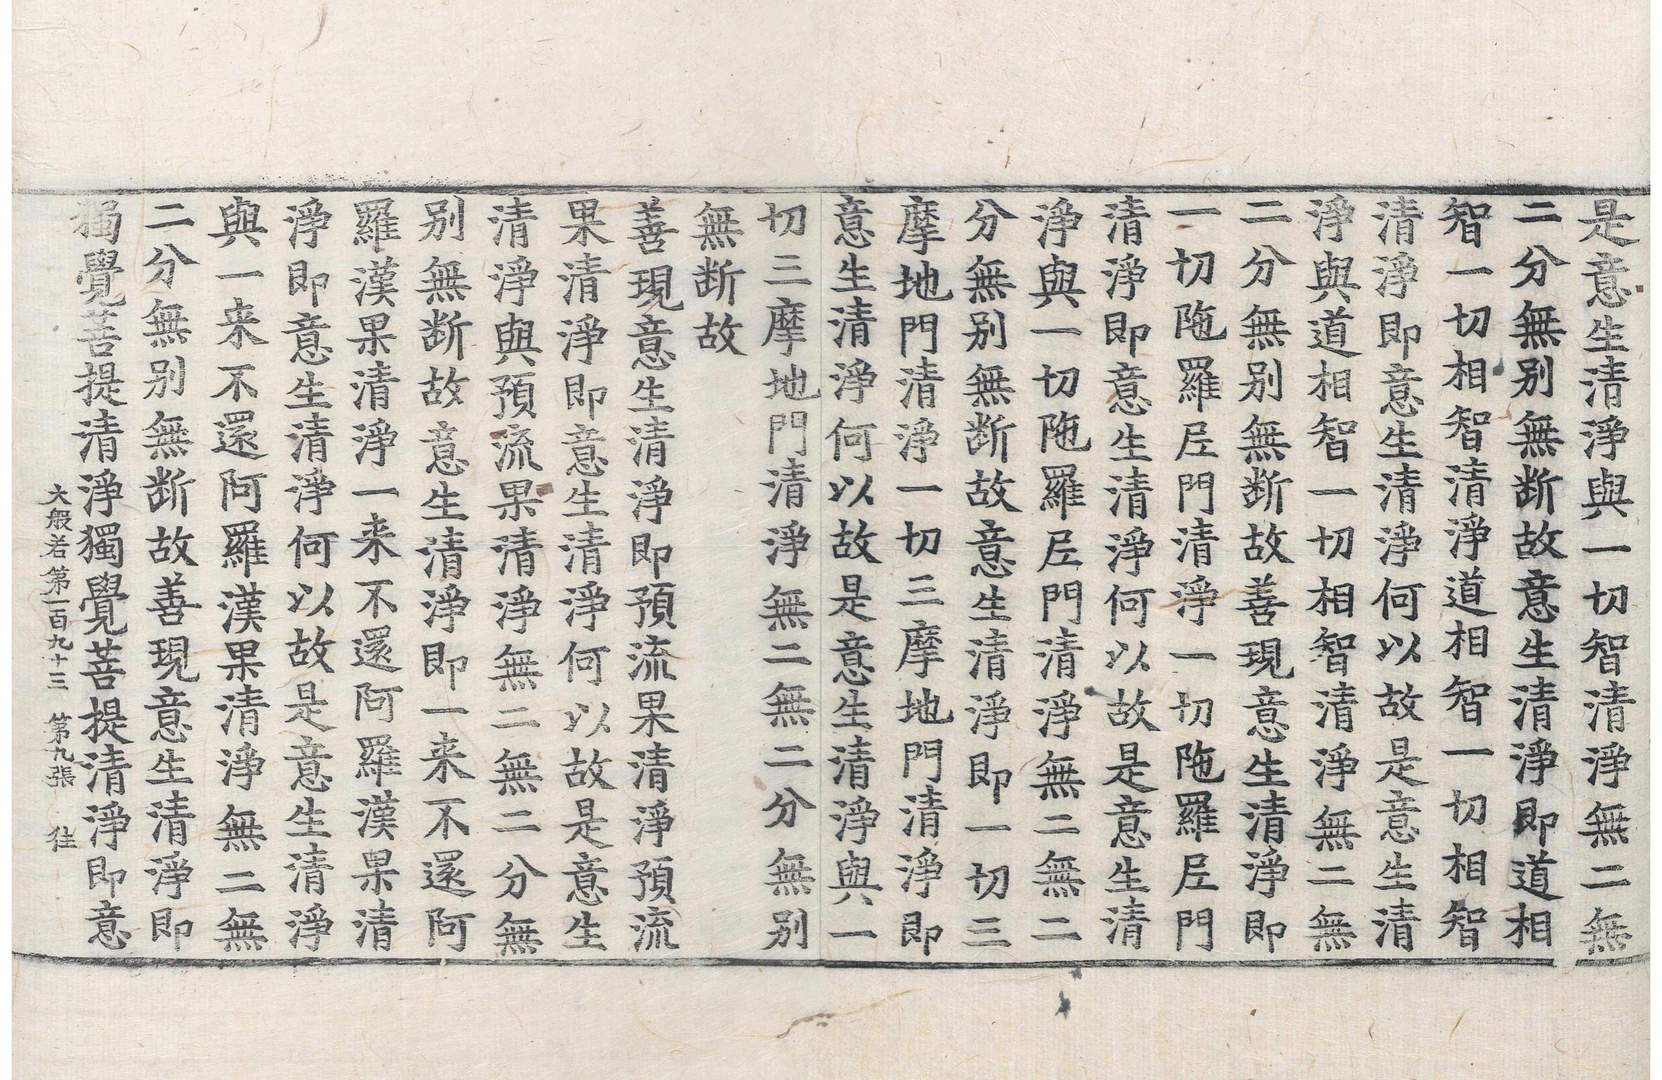 是意生清淨與一切智清淨無二無
二分無別無断故意生清淨即道相
智一切相智清淨道相智一切相智
清淨即意生清淨何以故是意生清
淨與道相智一切相智清淨無二無
二分無別無断故善現意生清淨即
一切陁羅尼門清淨一切陁羅尼門
清淨即意生清淨何以故是意生清
淨與一切陁羅尼門清淨無二無二
分無別無断故意生清淨即一切三
摩地門清淨一切三摩地門清淨即
意生清淨何以故是意生清淨與一
切三摩地門清淨無二無二分無別
無断故
善現意生清淨即預流果清淨預流
果清淨即意生清淨何以故是意生
清淨與預流果清淨無二無二分無
別無断故意生清淨即一来不還阿
羅漢果清淨一来不還阿羅漢果清
淨即意生清淨何以故是意生清淨
與一来不還阿羅漢果清淨無二無
二分無別無断故善現意生清淨即
獨覺菩提清淨獨覺菩提清淨即意
大般若第一百九十三 第九張